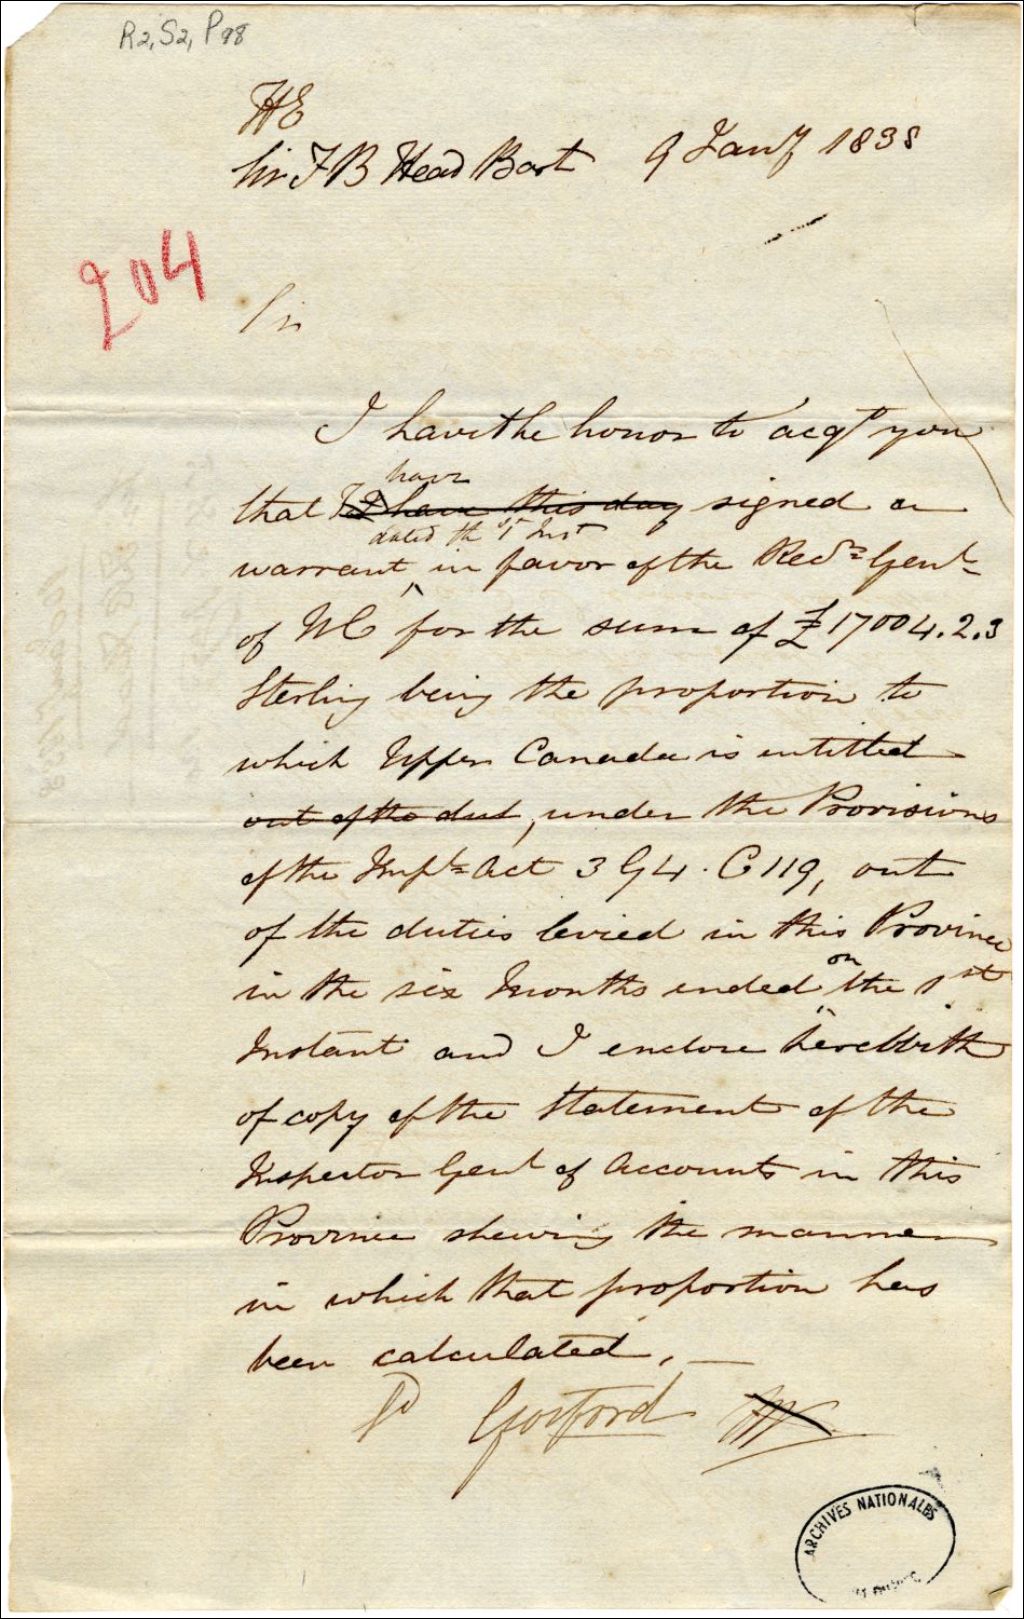 R2, S2, P98
HE
Sir F B Head Bart 9 Jany 1838
204
Sir
I have the honor to acqt you
have
that I have this day signed a
dated the 1st Inst
warrant in favor of the Recr Genl
of UC for the sum of £17004.2.3
Sterling being the proportion to
which Upper Canada is entitled
out of the dut, under the Provisions
of the Impl Act 3 G 4. C 119, out
of the duties levied in this Province
in the six Months ended on the 1st
Instant and I enclose herewith
of copy of the Statement of the
Inspector Genl of Accounts in this
Province shewing the manner
in which that proportion has
been calculated. —
Sd Gosford
ARCHIVES NATIONALES